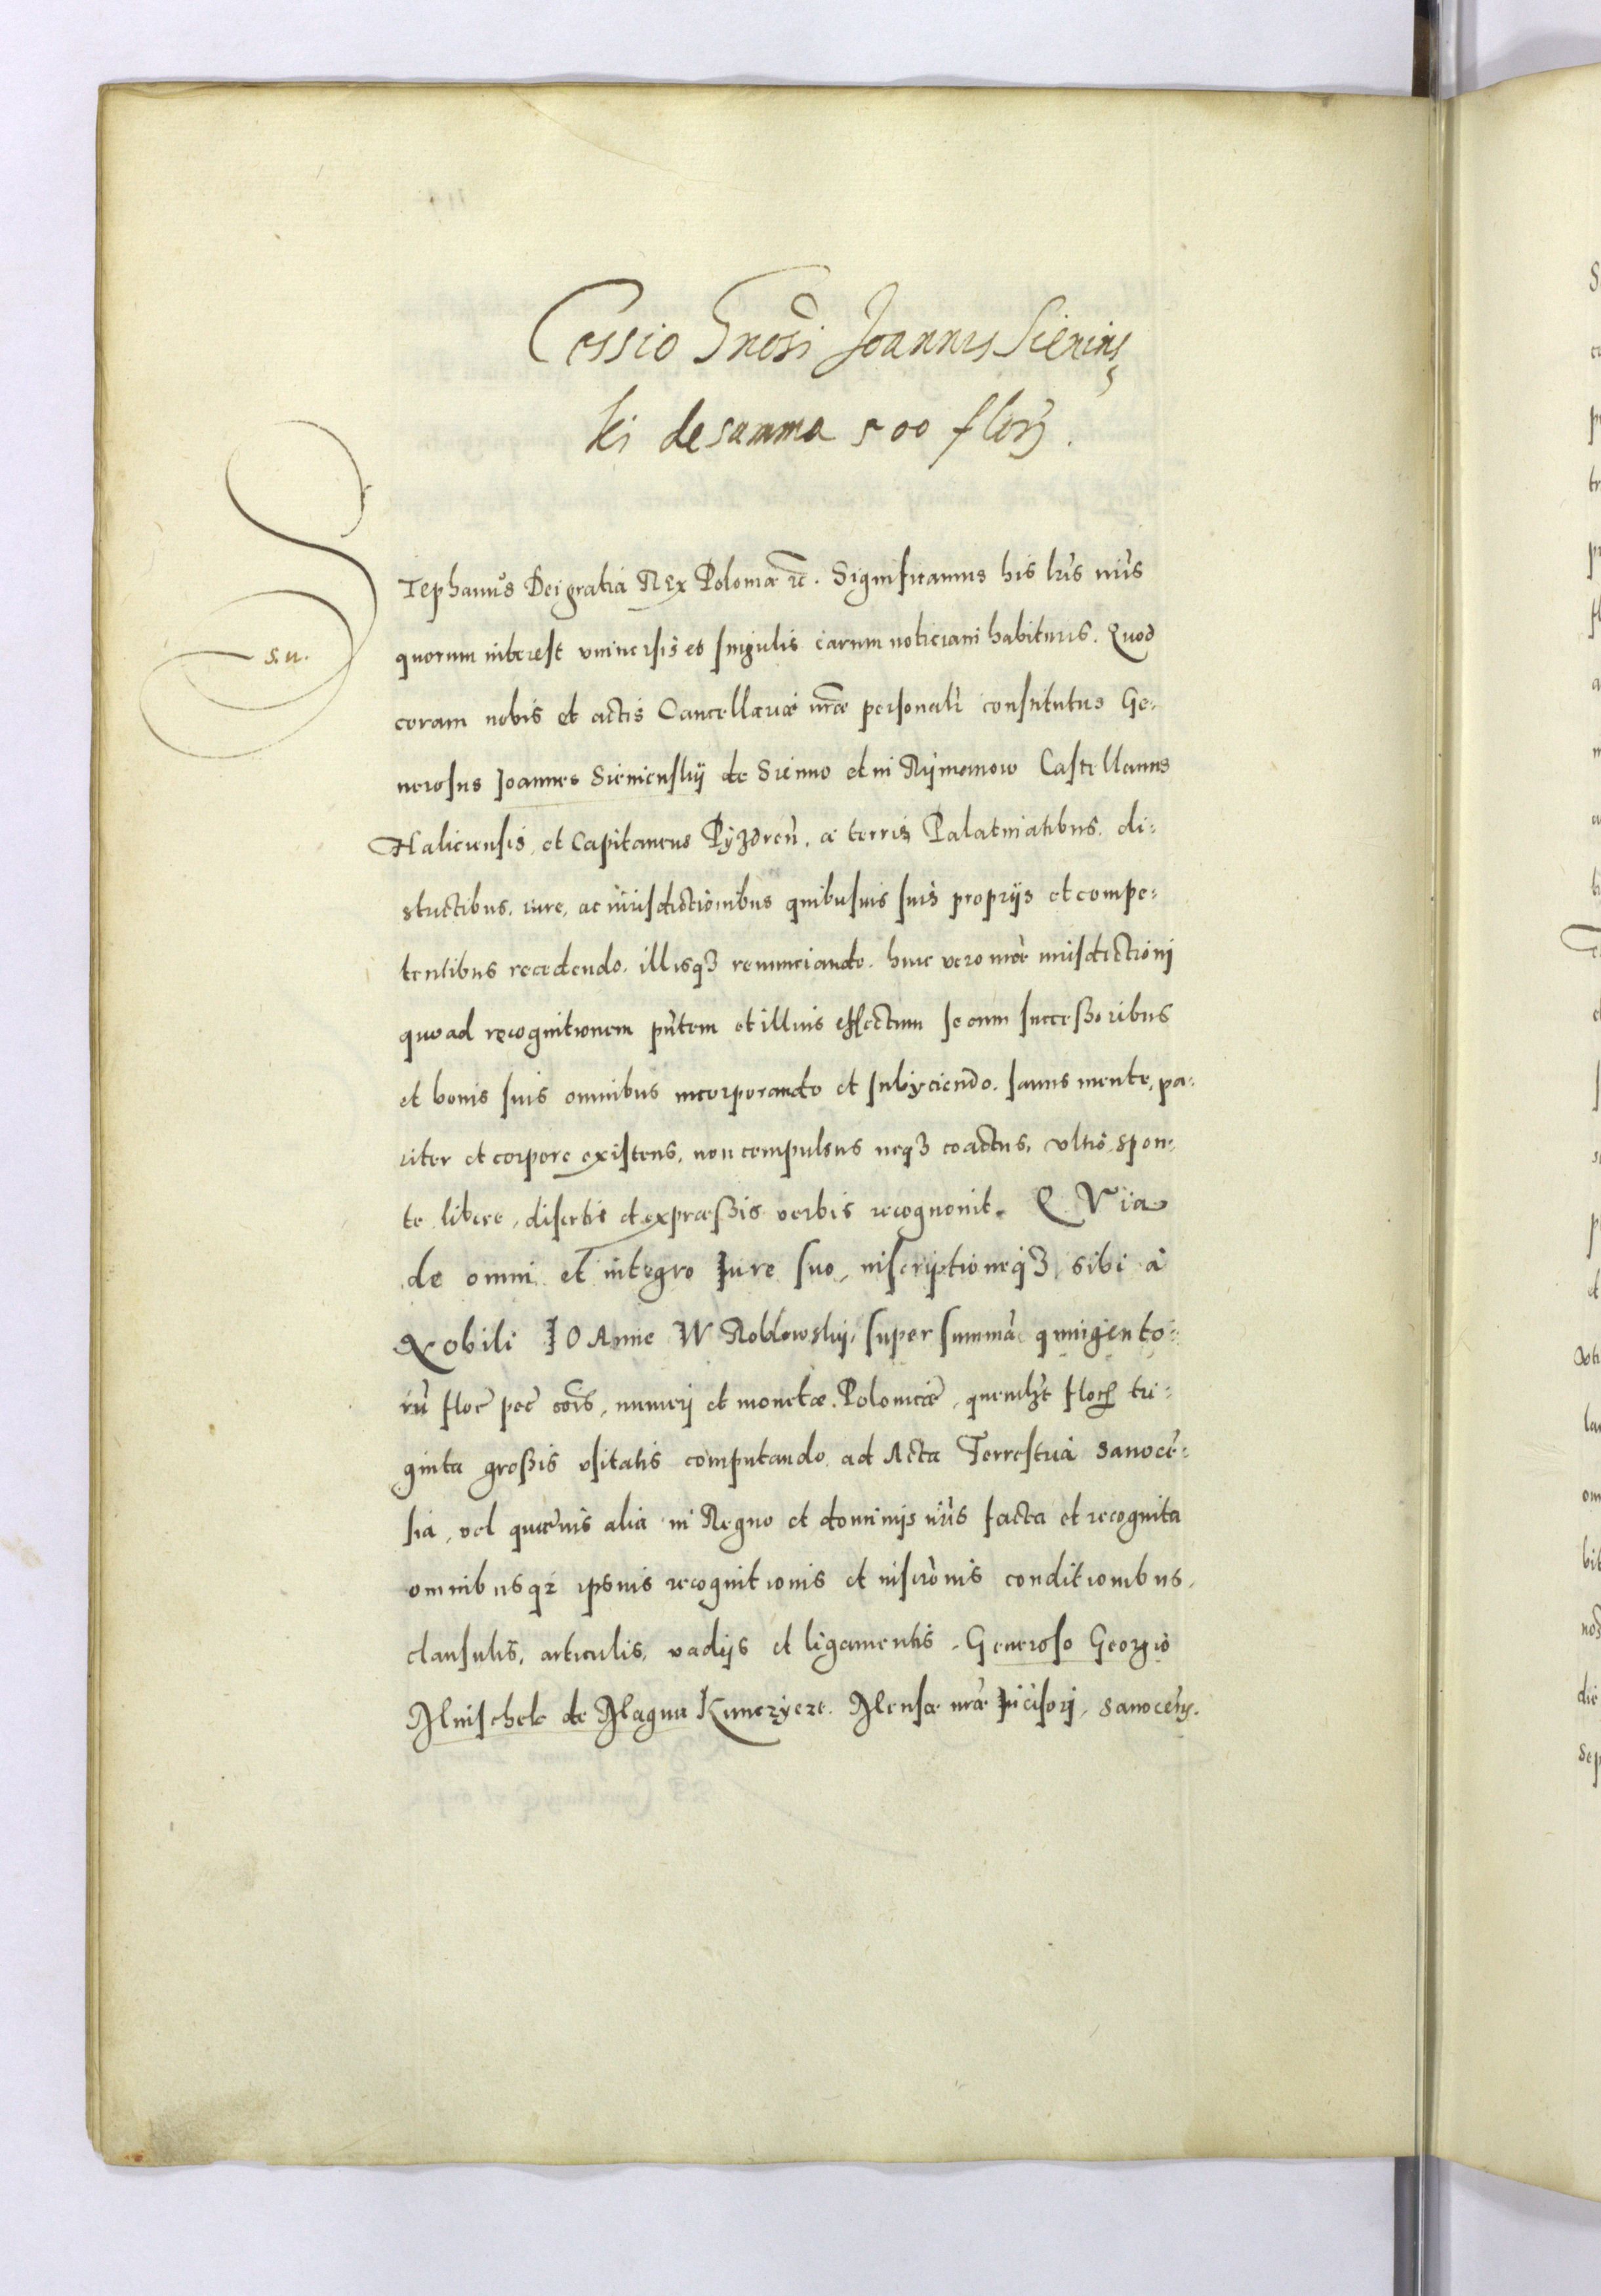 Cessio Gnosi Joannis Sienins
ki de summa 500 flor.
STephanus Dei gratia REx Poloniæ etc. Significamus his lris nris
s. n.
quorum interest universis et singulis earum noticiam habituris. Quod
coram nobis et actis Cancellariæ nræ personalr constitutus Ge-
nerosus Joannes Sienienskij de Sienno et in Rÿmanow Castellanus
Haliciensis, et Capitaneus Pÿzdren. a terris Palatinatibus, di-
strictibus, iure, ac iurisdictionibus quibusvis suis proprijs et compe-
tentibus recedendo, illisq3 renunciando. huic vero nræ iurisdictioni
quo ad recognitionem pntem et illius effectum se cum successoribus
et bonis suis omnibus incorporando et subijciendo. sanus mente, pa-
riter et corpore existens, non compulsus neq3 coactus, ultro, spon-
te, libere, disertis et expræssis verbis recognovit. QVia
de omni et integro Jure suo, inscriptioneq3 sibi à
Nobili JOAnne WRoblowskij, super summa quingento-
rũ flor pec cois, numeri et monetæ Polonicæ, quemlzt flor tri-
ginta grossis usitatis computando, ad Acta Terrestria Sanoce-
sia, vel quævis alia in Regno et dominijs nris facta et recognita
omnibusq3 ipsius recognitionis et inscronis conditionibus,
clausulis, articulis, vadijs et ligamentis. Generoso Georgio
Mnischek de Magna Kunczÿcze. Mensæ nræ Jncisori, Sanocen.